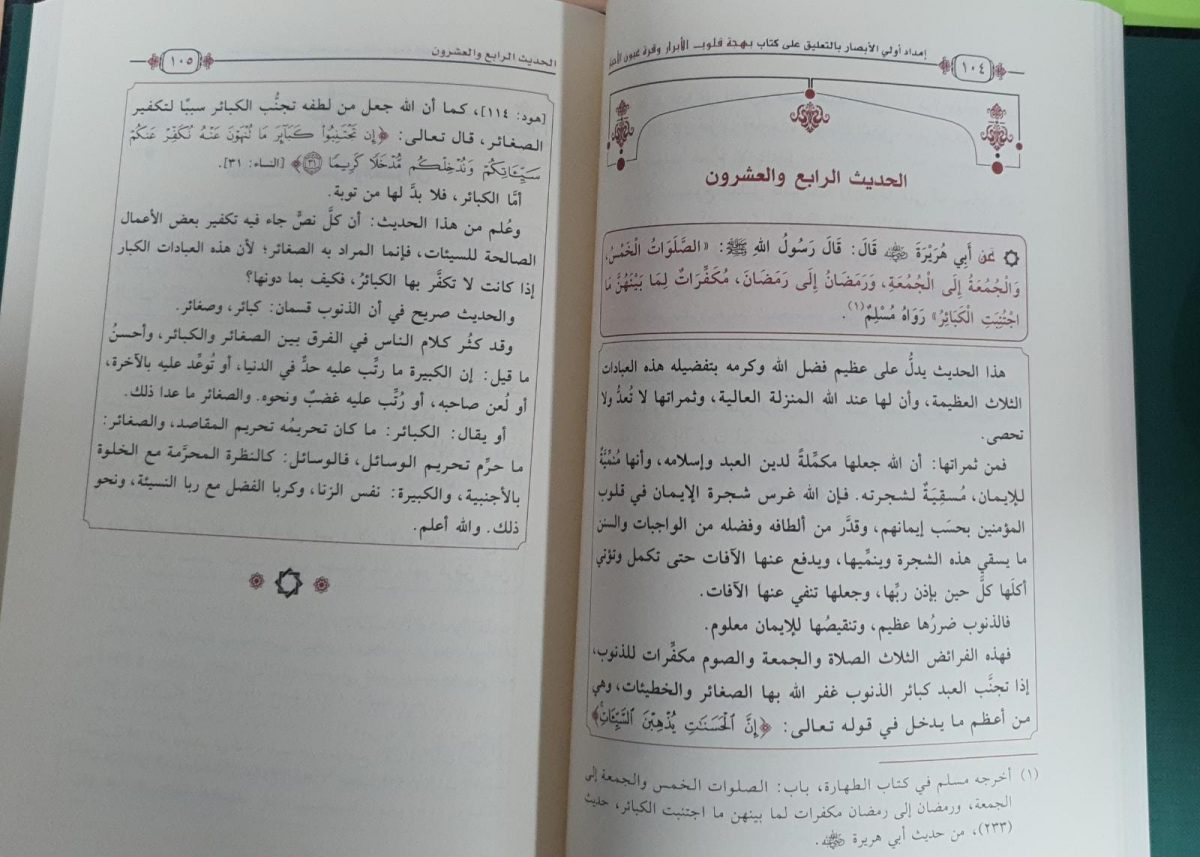 إمداد أولي الأبصار بالتعليق على كتاب بهجة قلوب الأبرار وقرة عيون
١٠٤
الحديث الرابع والعشرون
عَنْ أَبِي هُرَيْرَةَ رضي الله عنه قَالَ: قَالَ رَسُولُ اللهِ ﷺ: «الصَّلَوَاتُ الْخَمْسُ،
وَالْجُمُعَةُ إِلَى الْجُمُعَةِ، وَرَمَضَانُ إِلَى رَمَضَانَ، مُكَفِّرَاتٌ لِمَا بَيْنَهُنَّ مَا
اجْتُنِبَتِ الْكَبَائِرُ» رَوَاهُ مُسْلِمٌ(١).
هذا الحديث يدلُّ على عظيم فضل الله وكرمه بتفضيله هذه العبادات
الثلاث العظيمة، وأن لها عند الله المنزلة العالية، وثمراتها لا تُعدُّ ولا
تحصى.
فمن ثمراتها: أن الله جعلها مكمِّلةً لدين العبد وإسلامه، وأنها مُنمِّيَّةٌ
للإيمان، مُسقِيَةٌ لشجرته. فإن الله غرس شجرة الإيمان في قلوب
المؤمنين بحسَب إيمانهم، وقدَّر من ألطافه وفضله من الواجبات والسنن
ما يسقي هذه الشجرة وينمِّيها، ويدفع عنها الآفات حتى تكمل وتؤتي
أكلَها كلَّ حين بإذن ربِّها، وجعلها تنفي عنها الآفات.
فالذنوب ضررُها عظيم، وتنقيصُها للإيمان معلوم.
فهذه الفرائض الثلاث الصلاة والجمعة والصوم مكفِّرات للذنوب،
إذا تجنَّب العبد كبائر الذنوب غفر الله بها الصغائر والخطيئات، وهي
من أعظم ما يدخل في قوله تعالى: ﴿إِنَّ ٱلْحَسَنَٰتِ يُذْهِبْنَ ٱلسَّيِّـَٔاتِ﴾
(١) أخرجه مسلم في كتاب الطهارة، باب: الصلوات الخمس والجمعة إلى
الجمعة، ورمضان إلى رمضان مكفرات لما بينهن ما اجتنبت الكبائر، حديث
(٢٣٣)، من حديث أبي هريرة رضي الله عنه.
الحديث الرابع والعشرون
١٠٥
[هود: ١١٤]، كما أن الله جعل من لطفه تجنُّب الكبائر سببًا لتكفير
الصغائر، قال تعالى: ﴿إِن تَجْتَنِبُوا۟ كَبَآئِرَ مَا تُنْهَوْنَ عَنْهُ نُكَفِّرْ عَنكُمْ
سَيِّـَٔاتِكُمْ وَنُدْخِلْكُم مُّدْخَلًا كَرِيمًا ٣١﴾ [النساء: ٣١].
أمَّا الكبائر، فلا بدَّ لها من توبة.
وعُلم من هذا الحديث: أن كلَّ نصٍّ جاء فيه تكفير بعض الأعمال
الصالحة للسيئات، فإنما المراد به الصغائر؛ لأن هذه العبادات الكبار
إذا كانت لا تكفَّر بها الكبائرُ، فكيف بما دونها؟
والحديث صريح في أن الذنوب قسمان: كبائر، وصغائر.
وقد كثُر كلام الناس في الفرق بين الصغائر والكبائر، وأحسنُ
ما قيل: إن الكبيرة ما رتِّب عليه حدٌّ في الدنيا، أو تُوعِّد عليه بالآخرة،
أو لُعن صاحبه، أو رُتِّب عليه غضبٌ ونحوه. والصغائر ما عدا ذلك.
أو يقال: الكبائر: ما كان تحريمُه تحريم المقاصد، والصغائر:
ما حرِّم تحريم الوسائل، فالوسائل: كالنظرة المحرَّمة مع الخلوة
بالأجنبية، والكبيرة: نفس الزنا، وكربا الفضل مع ربا النسيئة، ونحو
ذلك. والله أعلم.